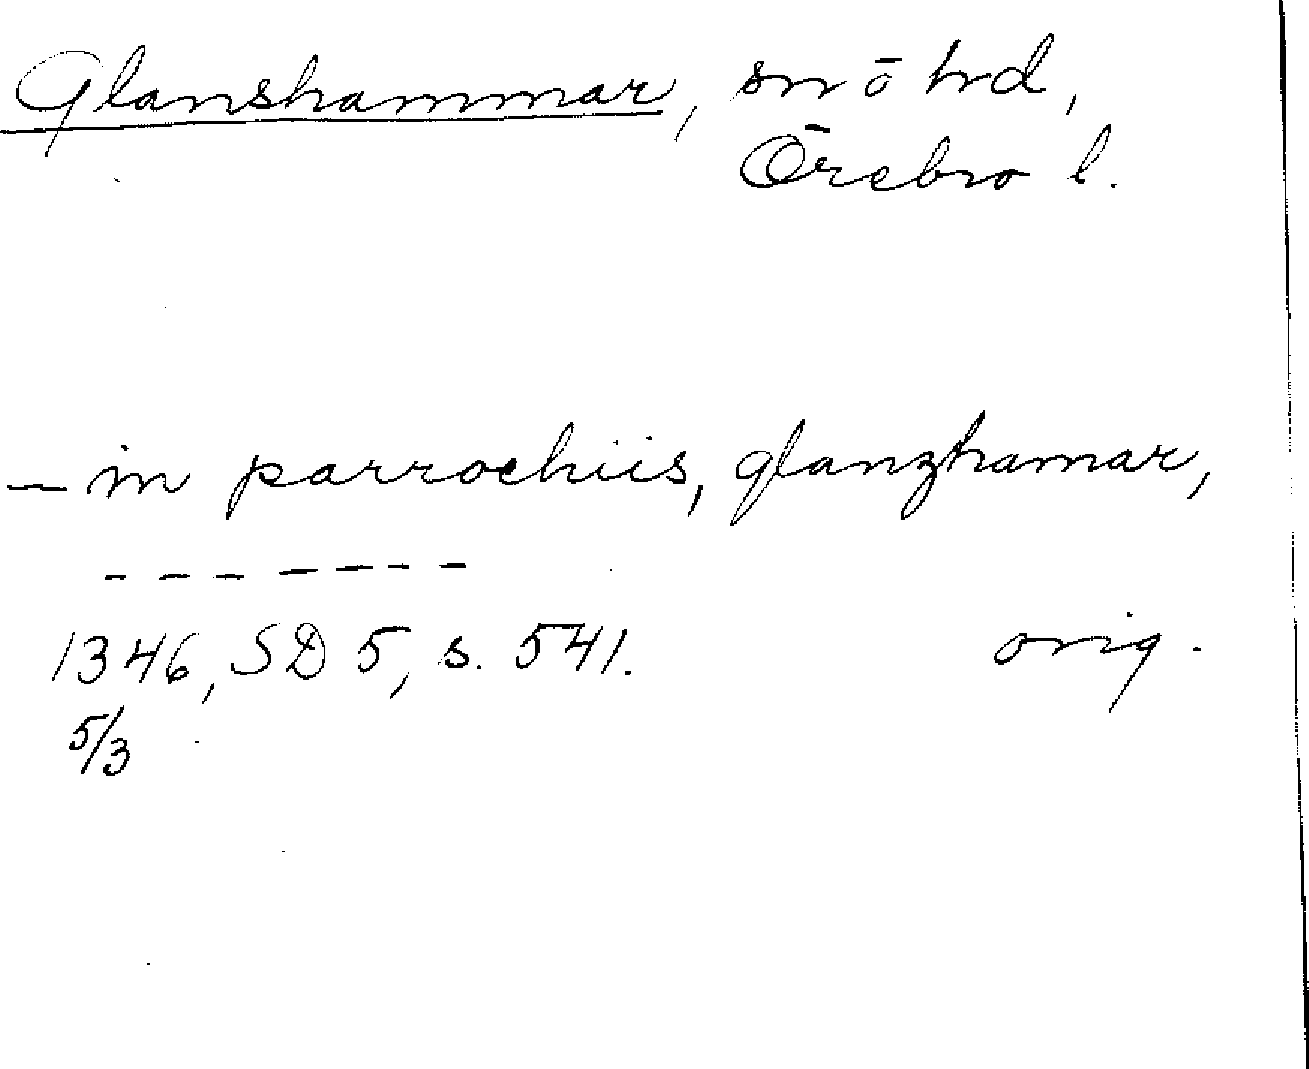 Glanshammar, sn ö hd,
Örebro l.
– in parrochiis, glanzhamar,
- - - - - - -
1346, SD 5, s. 541. orig.
5/3